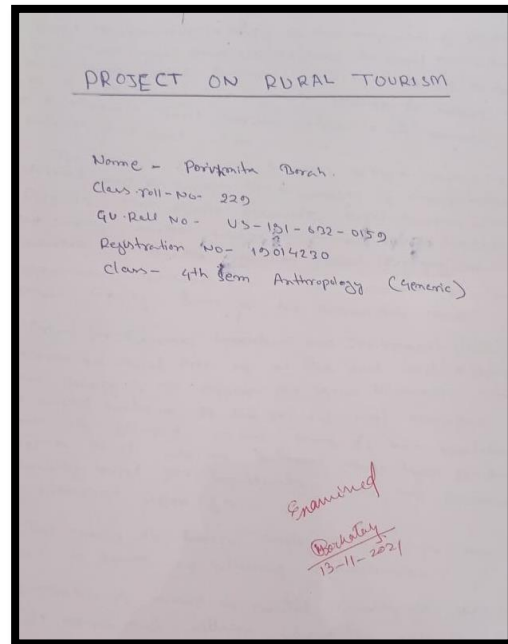 PROJECT ON RURAL TOURISM
Name - Borah.
Class roll-No- 229
GU. Roll No - US-191-632-0159
Registration No- 19014230
Class- 4th Sem Anthropology (Generic)
Examined
13-11-2021